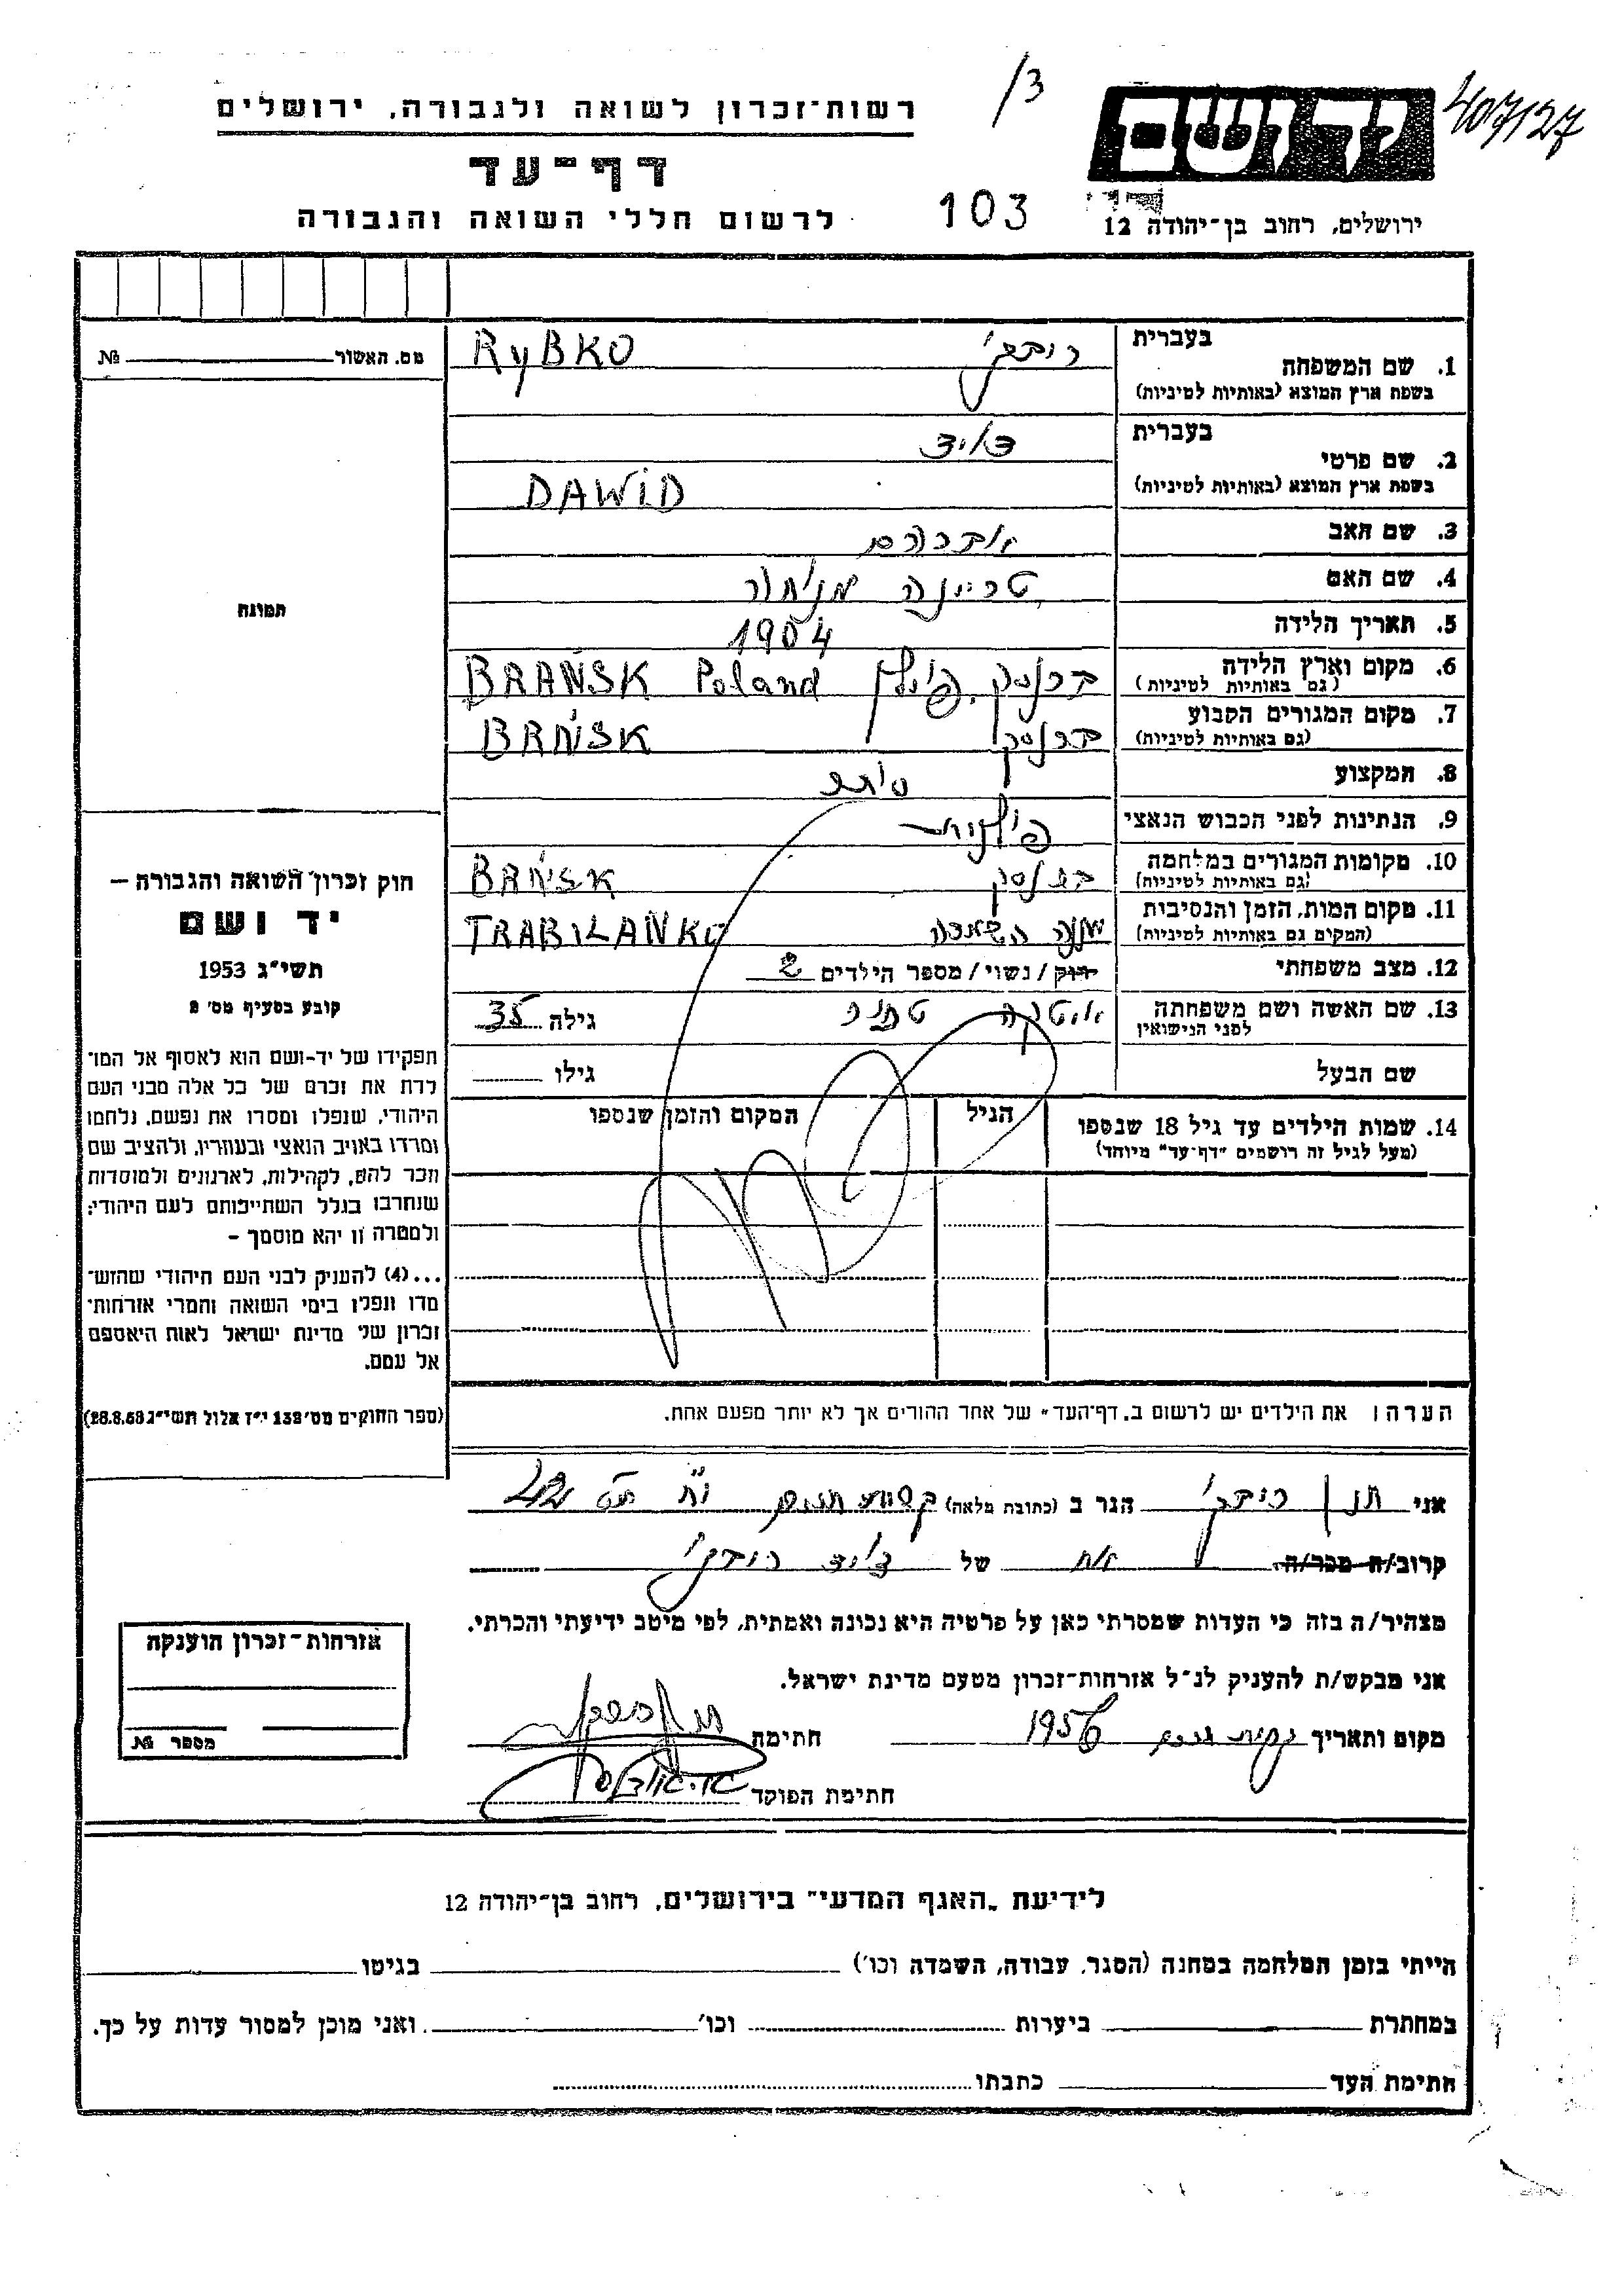 רשות־זכרון לשואה ולגבורה, ירושלים
/3
יד ושם
407/127
דף־עד
לרשום חללי השואה והגבורה
103
ירושלים, רחוב בן־יהודה 12
מס. האשור № 
1. שם המשפחה בעברית
בשפת ארץ המוצא (באותיות לטיניות)
RyBKO
2. שם פרטי בעברית דוד
בשפת ארץ המוצא (באותיות לטיניות)
DAWiD
3. שם האב אברהם
4. שם האם
5. תאריך הלידה 1904
6. מקום וארץ הלידה ברנסק, פולין BRAŃSK Poland
(גם באותיות לטיניות)
7. מקום המגורים הקבוע ברנסק BRŃSK
(גם באותיות לטיניות)
8. המקצוע סוחר
9. הנתינות לפני הכבוש הנאצי פולנית
10. מקומות המגורים במלחמה ברנסק BRŃSK
(גם באותיות לטיניות)
11. מקום המות, הזמן והנסיבות מחנה השמדה TRABILANKO
(המקום גם באותיות לטיניות)
12. מצב משפחתי רוק/נשוי/מספר הילדים 2
13. שם האשה ושם משפחתה גילה 35
לפני הנישואין
שם הבעל גילו
14. שמות הילדים עד גיל 18 שנספו הגיל המקום והזמן שנספו
(מעל לגיל זה רושמים "דף־עד" מיוחד)
הערה: את הילדים יש לרשום ב„דף־העד" של אחד ההורים אך לא יותר מפעם אחת.
תמונה
חוק זכרון השואה והגבורה —
יד ושם
תשי"ג 1953
קובע בסעיף מס' 2
תפקידו של יד-ושם הוא לאסוף אל המו־
לדת את זכרם של כל אלה מבני העם
היהודי, שנפלו ומסרו את נפשם, נלחמו
ומרדו באויב הנאצי ובעוזריו, ולהציב שם
וזכר להם, לקהילות, לארגונים ולמוסדות
שנחרבו בגלל השתייכותם לעם היהודי;
ולמטרה זו יהא מוסמך –
...(4) להעניק לבני העם היהודי שהוש־
מדו ונפלו בימי השואה והמרי אזרחות־
זכרון של מדינת ישראל לאות היאספם
אל עמם.
(ספר החוקים מס' 132 י"ז אלול תשי"ג 28.8.53)
אני הגר ב (כתובת מלאה)
קרוב/ה מכר/ה אח של דוד
מצהיר/ה בזה כי העדות שמסרתי כאן על פרטיה היא נכונה ואמתית, לפי מיטב ידיעתי והכרתי.
אני מבקש/ת להעניק לנ"ל אזרחות־זכרון מטעם מדינת ישראל.
מקום ותאריך 1956 חתימת
חתימת הפוקד
אזרחות־זכרון הוענקה
מספר №
לידיעת „האגף המדעי" בירושלים, רחוב בן־יהודה 12
הייתי בזמן המלחמה במחנה (הסגר, עבודה, השמדה וכו') בגיטו
במחתרת ביערות וכו' ואני מוכן למסור עדות על כך.
חתימת העד כתבתו